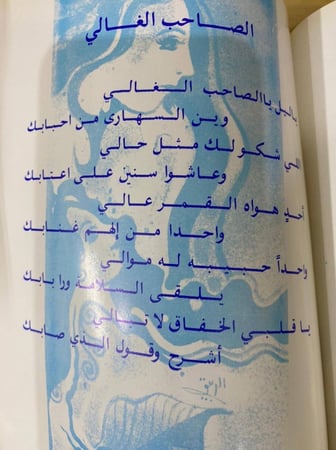 الصاحب الغالي
يا ليل يا الصاحب الغالي
وين السهارى من احبابك
اللي شكو لك مثل حالي
وعاشوا سنين على اعتابك
أحدٍ هواه القمر عالي
واحدا من إلهم غنابك
واحداً حبيبه له موالي
يلقى السلامة ورا بابك
يا قلبي الخفاق لا تبالي
أشرح وقول الذي صابك